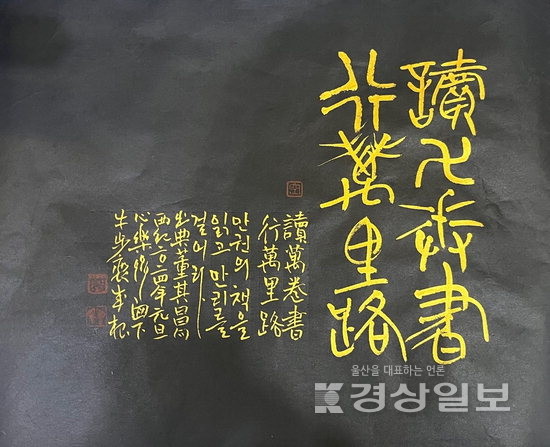 讀卍卷書
行萬里路
讀萬卷書
行萬里路
만권의 책을
읽고 만리를
걸어라
出典董其昌
西紀二〇二四年元旦
心樂
牛步
울산을 대표하는 언론
경상일보